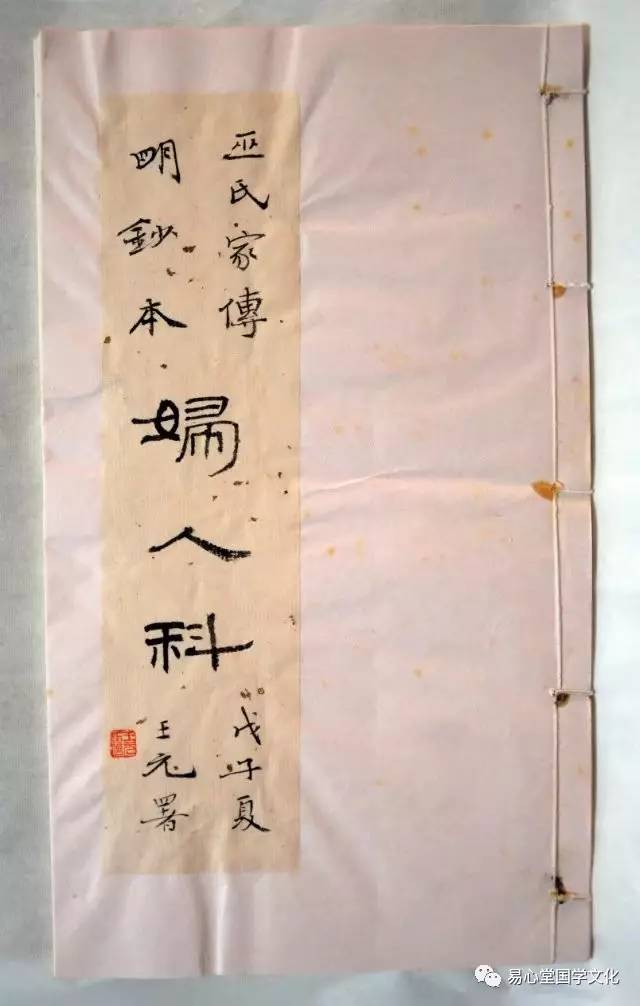 巫氏家傳
明鈔本
婦人科
戊子夏
王元署
易心堂国学文化